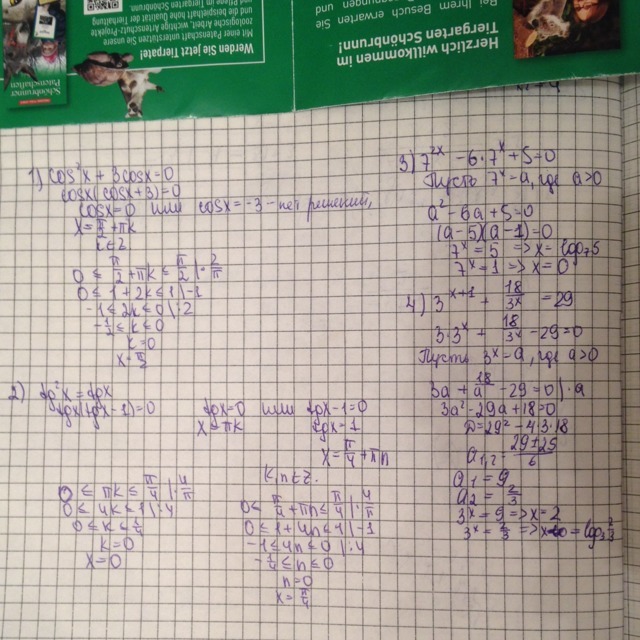 Werden Sie jetzt Tierpate!
Mit einer Patenschaft unterstützen Sie unsere
zoologische Arbeit, wichtige Artenschutz-Projekte
und die beispielhaft hohe Qualität der Tierhaltung
und Pflege im Tiergarten Schönbrunn.
Schönbrunner
Patenschaften
Herzlich willkommen im
Tiergarten Schönbrunn!
Bei Ihrem Besuch erwarten Sie
und
1) cos²x + 3cosx = 0
cosx(cosx+3)=0
cosx=0 или cosx=-3 - нет решений,
x=π/2+πk
k∈Z
0 ≤ π/2+πk ≤ π/2 |·2/π
0 ≤ 1+2k ≤ 1 |-1
-1 ≤ 2k ≤ 0 |:2
-1/2 ≤ k ≤ 0
k=0
x=π/2
2) tg²x = tgx
tgx(tgx-1)=0
tgx=0 или tgx-1=0
x=πk tgx=1
x=π/4+πn
k,n∈Z.
0 ≤ πk ≤ π/4 |·4/π
0 ≤ 4k ≤ 1 |:4
0 ≤ k ≤ 1/4
k=0
x=0
0 ≤ π/4+πn ≤ π/4 |·4/π
0 ≤ 1+4n ≤ 1 |-1
-1 ≤ 4n ≤ 0 |:4
-1/4 ≤ n ≤ 0
n=0
x=π/4
3) 7^2x - 6·7^x + 5=0
Пусть 7^x=a, где a>0
a²-6a+5=0
(a-5)(a-1)=0
7^x=5 => x=log₇5
7^x=1 => x=0
4) 3^x+1 + 18/3^x = 29
3·3^x + 18/3^x - 29=0
Пусть 3^x=a, где a>0
3a + 18/a - 29=0 |·a
3a²-29a+18=0
D=29²-4·3·18
a₁,₂=29±25/6
a₁=9
a₂=2/3
3^x=9 => x=2
3^x=2/3 => x=log₃2/3